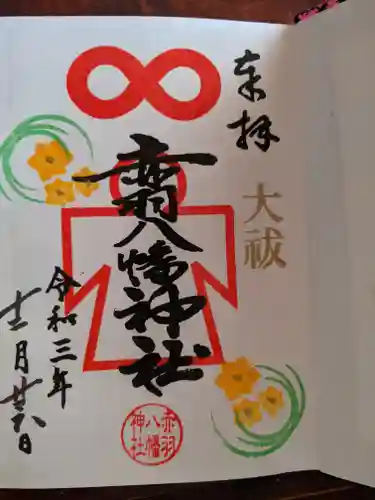 奉拝
大祓
赤羽八幡神社
令和三年
十二月廿八日
赤羽
八幡
神社